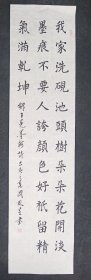 我家洗硯池頭樹朶朶花開淡
墨痕不要人誇顔色好祇留精
氣滿乾坤